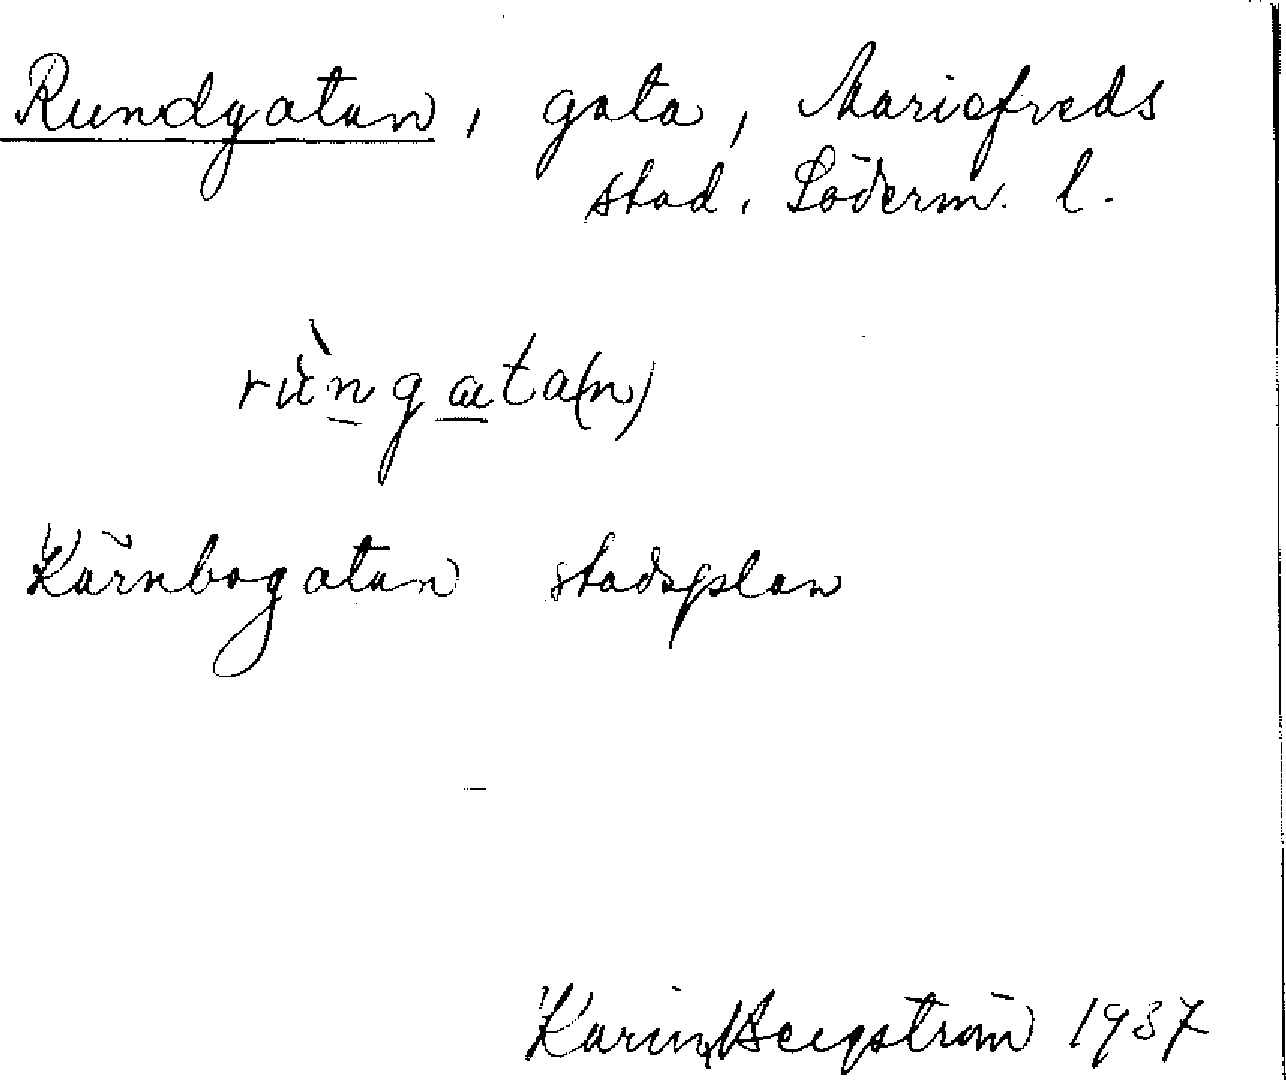 Rundgatan, gata, Mariefreds
stad. Söderm. l.
rùngata(n)
Kärnbogatan stadsplan
Karin Bergström 1937